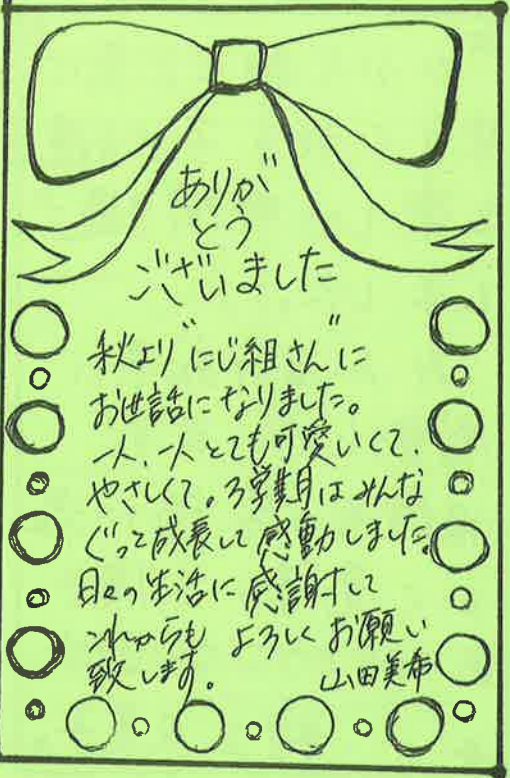 ありが
とう
ございました
秋より"にじ組さん"に
お世話になりました。
一人、一人とても可愛いくて、
やさしくて。3学期はみんな
ぐっと成長して感動しました。
日々の生活に感謝して
これからも よろしくお願い
致します。 山田美希